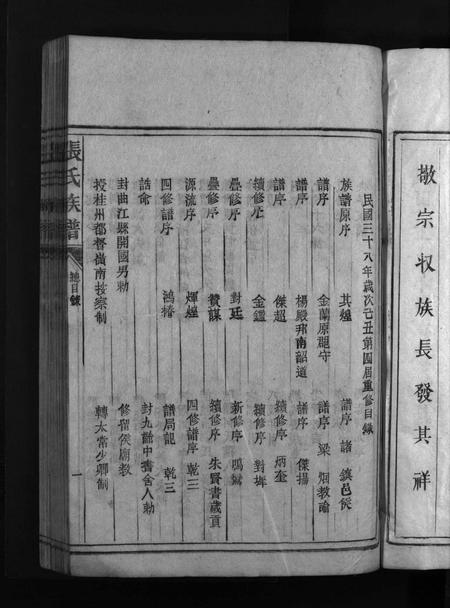 敬宗収族長發其祥
民國三十八年歲次己丑第四屆重修目錄
族譜原序 其煌 譜序 諸 鎮邑侯
譜序 金蘭原郡守 譜序 梁 烟教諭
譜序 楊殿邦南韶道 譜序 傑揚
譜序 傑超 續修序 炳奎
續修序 金鑑 續修序 對墀
疊修序 對廷 新修序 鳴
疊修序 贊謀 續修序 朱賢書歲貢
源流序 煇煌 四修譜序 乾三
四修譜序 鴻椿 譜局記 乾三
誥命 封九齡中書舍人勅
封曲江縣開國男勅 修留侯廟教
授桂州都督嶺南按察制 轉太常少卿制
張氏族譜
總目錄
一